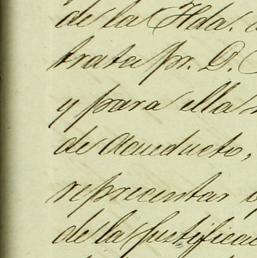 de la Hda.
trata pr. D.
y para ella
de acueducto,
representar
de la Justificac